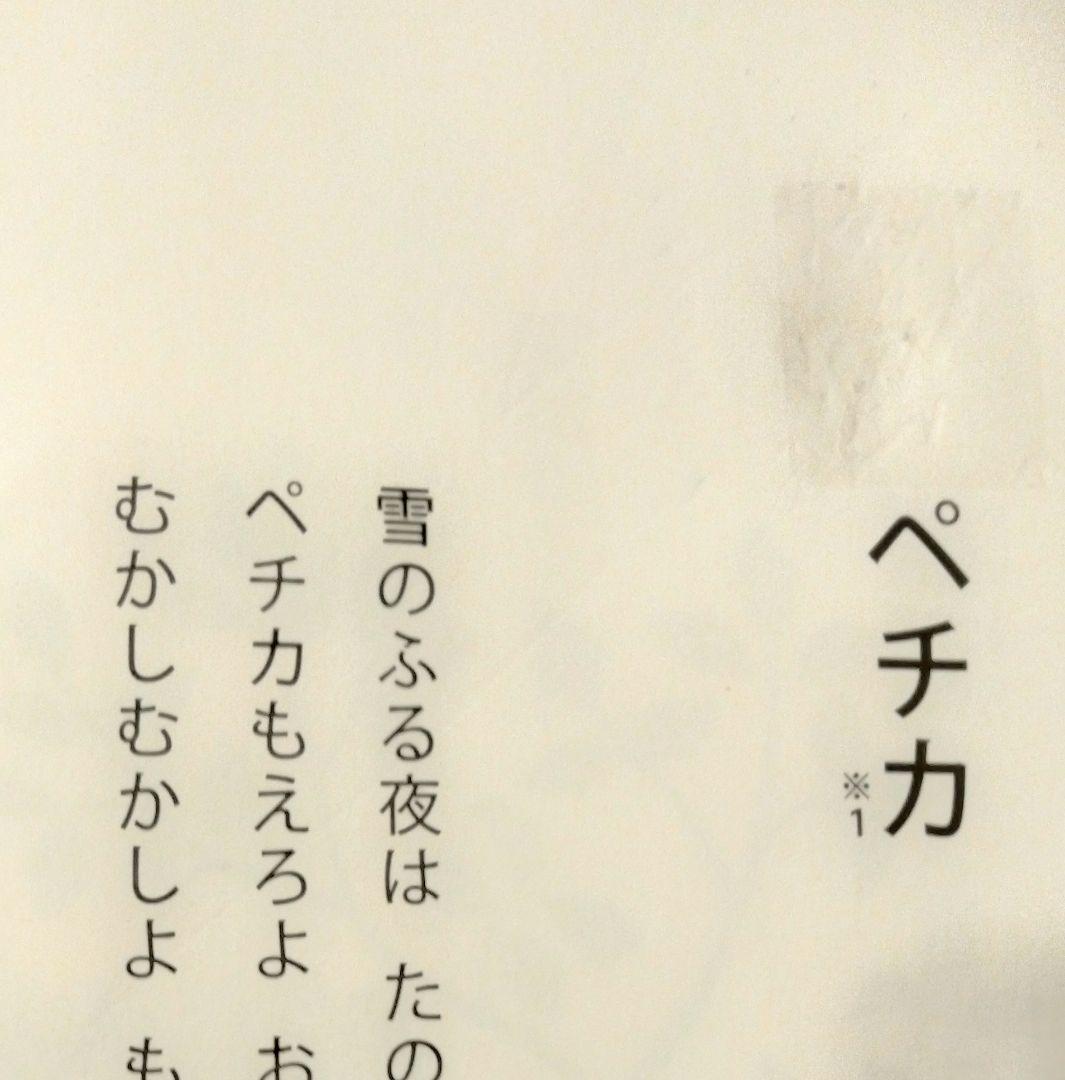 ペチカ
※1
雪のふる夜は たの
ペチカもえろよ お
むかしむかしよ も